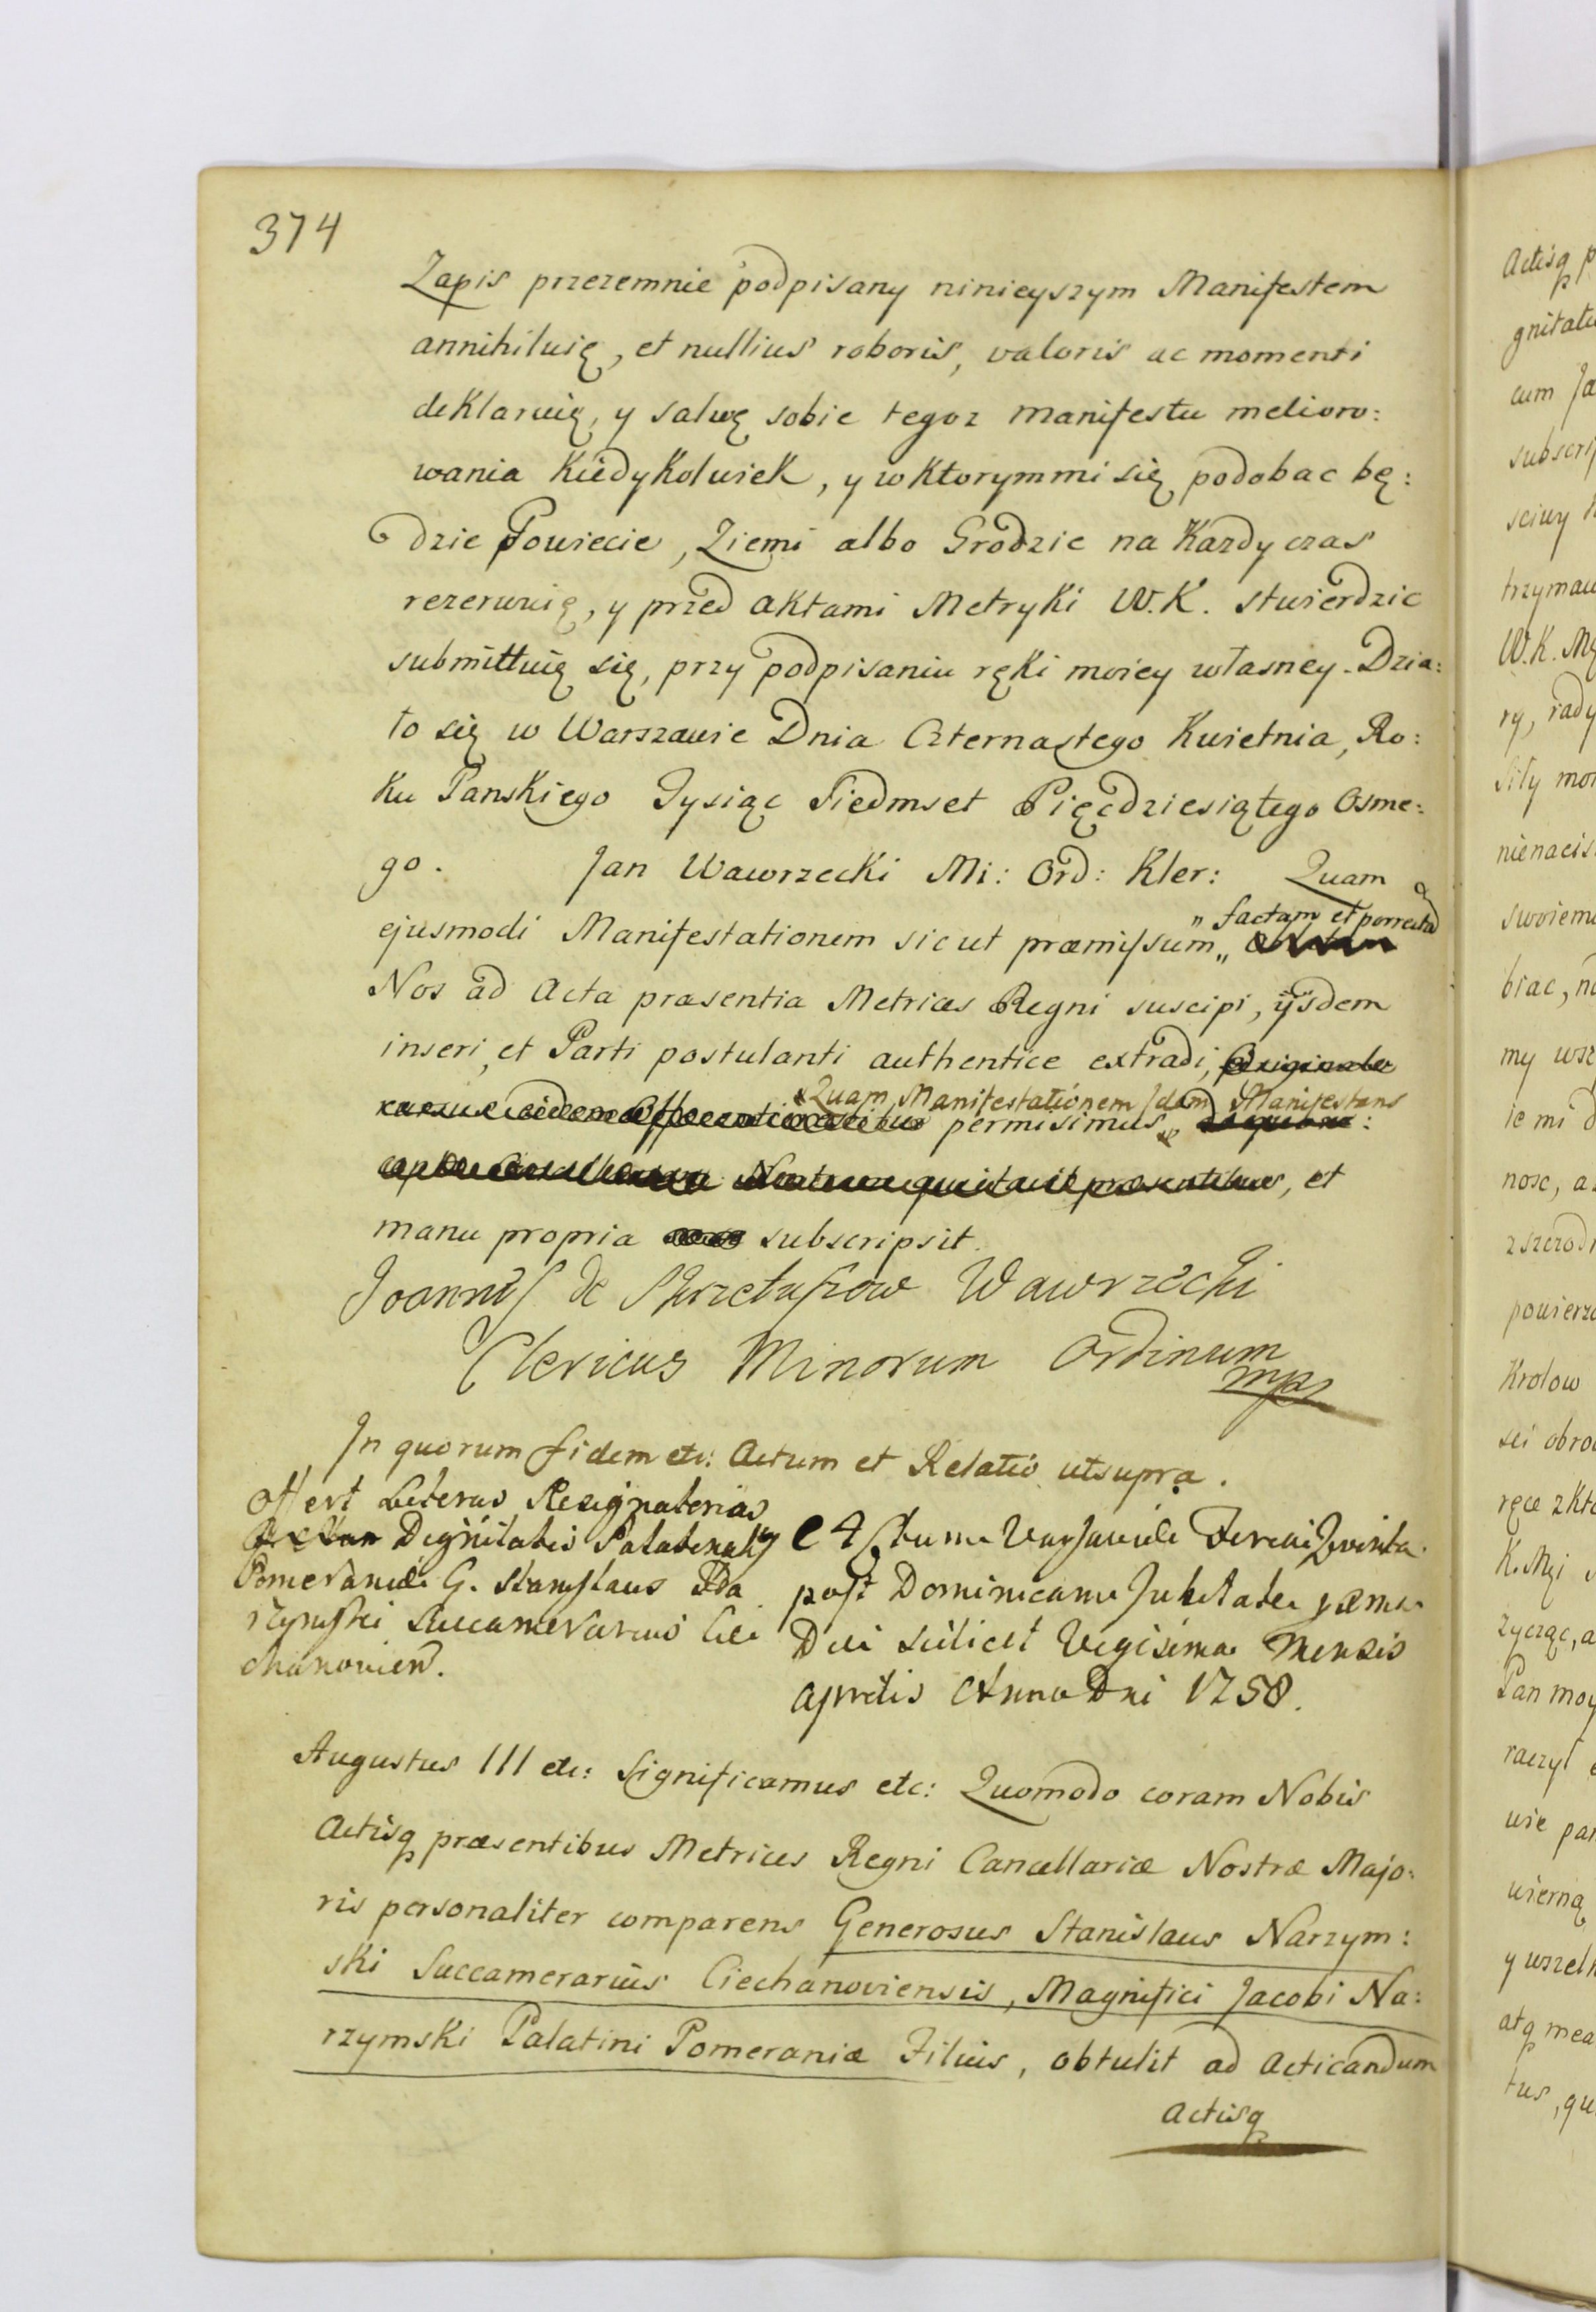 374
Zapis przezemnie podpisany ninieyszym Manifestem
annihiluię, et nullius roboris, valoris ac momenti
deklaruię, y salwę sobie tegoz manifestu melioro:
wania kiedykolwiek, y w ktorym mi się podobac bę:
dzie Powiecie, Ziemi albo Grodzie na Kazdy czas
rezerwuię, y przed aktami Metryki W.K. stwierdzic
submittuię się, przy podpisaniu ręki moiey własney. Dzia:
ło się w Warszawie Dnia Czternastego Kwietnia, Ro:
ku Panskiego Tysiąc Siedmset Pięcdziesiątego Osme:
go. Jan Wawrzecki Mi: Ord: Kler: Quam
" factam et porrectã
ejusmodi Manifestationem sicut præmissum "
Nos ad Acta præsentia Metrices Regni suscipi, ijsdem
inseri, et Parti postulanti authentice extradi, Originale
Quam Manifestationem Idem Manifestans
permisimus
præsentibus, et
manu propria subscripsit.
Joannes de Wawrzecki
Clericus Minorum Ordinum
mpa
In quorum fidem etc: Actum et Relatio ut supra.
Offert Literas Resignatorias
Dignitatis Palatinalis
Pomeraniæ G. Stanislaus Na
rzymski Succamerarius Cie
chanovien.
Actum Varsaviæ Feria Quinta
post Dominicam Jubilate proxima
Die scilicet Vigesima Mensis
Aprilis Anno Dni 1758.
Augustus III etc: Significamus etc: Quomodo coram Nobis
Actisq præsentibus Metrices Regni Cancellariæ Nostræ Majo:
ris personaliter comparens Generosus Stanislaus Narzym:
ski Succamerarius Ciechanoviensis, Magnifici Jacobi Na:
rzymski Palatini Pomeraniæ Filius, obtulit ad Acticandum
Actisq
Actisq p
gnitatu
cum Ja
subscri
sciwy
trzymaw
W.K. Mę
ry, rady
siły mo
nienacis
swoiemu
biac, n
my wsz
ie mi d
nosc, a
zszczod
powierz
Krolow
sci obro
ręce z kto
K. Mci
zycząc, a
Pan moy
raczył
wie pa
wierną
y wszelk
atq mea
tus, qu